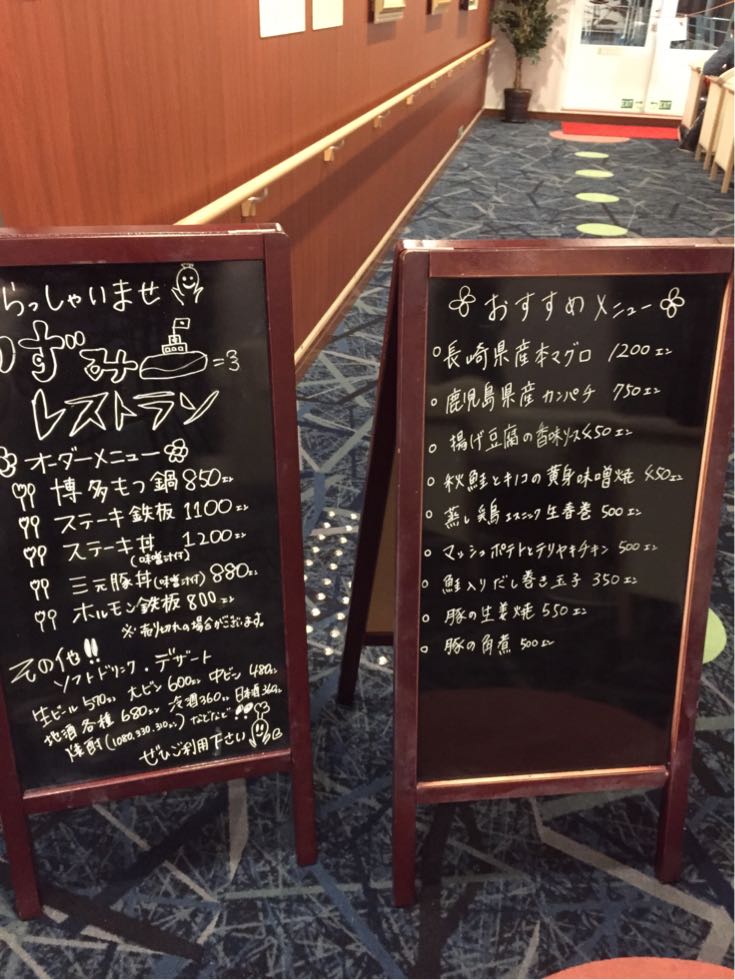 らっしゃいませ
ずみ
レストラン
オーダーメニュー
博多もつ鍋 850エン
ステーキ鉄板 1100エン
ステーキ丼 1200エン
(味噌汁付)
三元豚丼(味噌汁付) 880エン
ホルモン鉄板 800エン
※売り切れの場合がございます。
その他!!
ソフトドリンク・デザート
生ビール570エン 大ビン600エン 中ビン480エン
地酒各種680エン 冷酒360エン 日本酒360エン
焼酎(1080.330.310エン)などなど!!
ぜひご利用下さい
おすすめメニュー
長崎県産本マグロ 1200エン
鹿児島県産カンパチ 750エン
揚げ豆腐の香味ソース 450エン
秋鮭とキノコの黄身味噌焼 450エン
蒸し鶏エスニック生春巻 500エン
マッシュポテトとテリヤキチキン 500エン
鮭入りだし巻き玉子 350エン
豚の生姜焼 550エン
豚の角煮 500エン